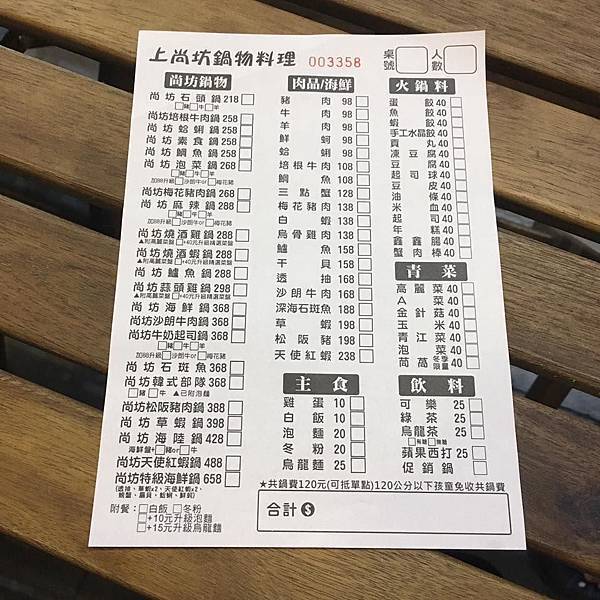 上尚坊鍋物料理 003358 桌號 人數
尚坊鍋物
尚坊石頭鍋 218
豬 牛 羊
尚坊培根牛肉鍋 258
尚坊蛤蜊鍋 258
尚坊素食鍋 258
尚坊鯛魚鍋 258
尚坊泡菜鍋 268
豬 牛 羊
加88升級 沙朗牛or 梅花豬
尚坊梅花豬肉鍋 268
尚坊麻辣鍋 288
豬 牛 羊
加88升級 沙朗牛or 梅花豬
尚坊燒酒雞鍋 288
▲附高麗菜盤 +40元升級精選菜盤
尚坊燒酒蝦鍋 288
▲附高麗菜盤 +40元升級精選菜盤
尚坊鱸魚鍋 288
尚坊蒜頭雞鍋 298
▲附高麗菜盤 +40元升級精選菜盤
尚坊海鮮鍋 368
尚坊沙朗牛肉鍋 368
尚坊牛奶起司鍋 368
豬 牛 羊
加88升級 沙朗牛or 梅花豬
尚坊石斑魚 368
尚坊韓式部隊 368
豬 牛 ▲已附泡麵
尚坊松阪豬肉鍋 388
尚坊草蝦鍋 398
尚坊海陸鍋 428
海鮮盤+ 豬or 牛
尚坊天使紅蝦鍋 488
尚坊特級海鮮鍋 658
附餐: 白飯 冬粉
+10元升級泡麵
+15元升級烏龍麵
肉品/海鮮
豬肉 98
牛肉 98
羊肉 98
鮮蚵 98
蛤蜊 98
培根牛肉 108
鯛魚 108
三點蟹 128
梅花豬肉 138
白蝦 138
烏骨雞肉 138
鱸魚 158
干貝 158
透抽 168
沙朗牛肉 168
深海石斑魚 188
草蝦 198
松阪豬 198
天使紅蝦 238
主食
雞蛋 10
白飯 10
泡麵 20
冬粉 20
烏龍麵 25
火鍋料
蛋餃 40
魚餃 40
蝦餃 40
手工水晶餃 40
貢丸 40
凍豆腐 40
豆腐 40
起司球 40
豆皮 40
油條 40
米血 40
起司 40
年糕 40
鑫鑫腸 40
蟹肉棒 40
青菜
高麗菜 40
A菜 40
金針菇 40
玉米 40
青江菜 40
泡菜 40
茼萵 冬季限量 40
飲料
可樂 25
綠茶 25
烏龍茶 25
有糖 無糖
蘋果西打 25
促銷鍋
★共鍋費120元(可抵單點)120公分以下孩童免收共鍋費
合計$